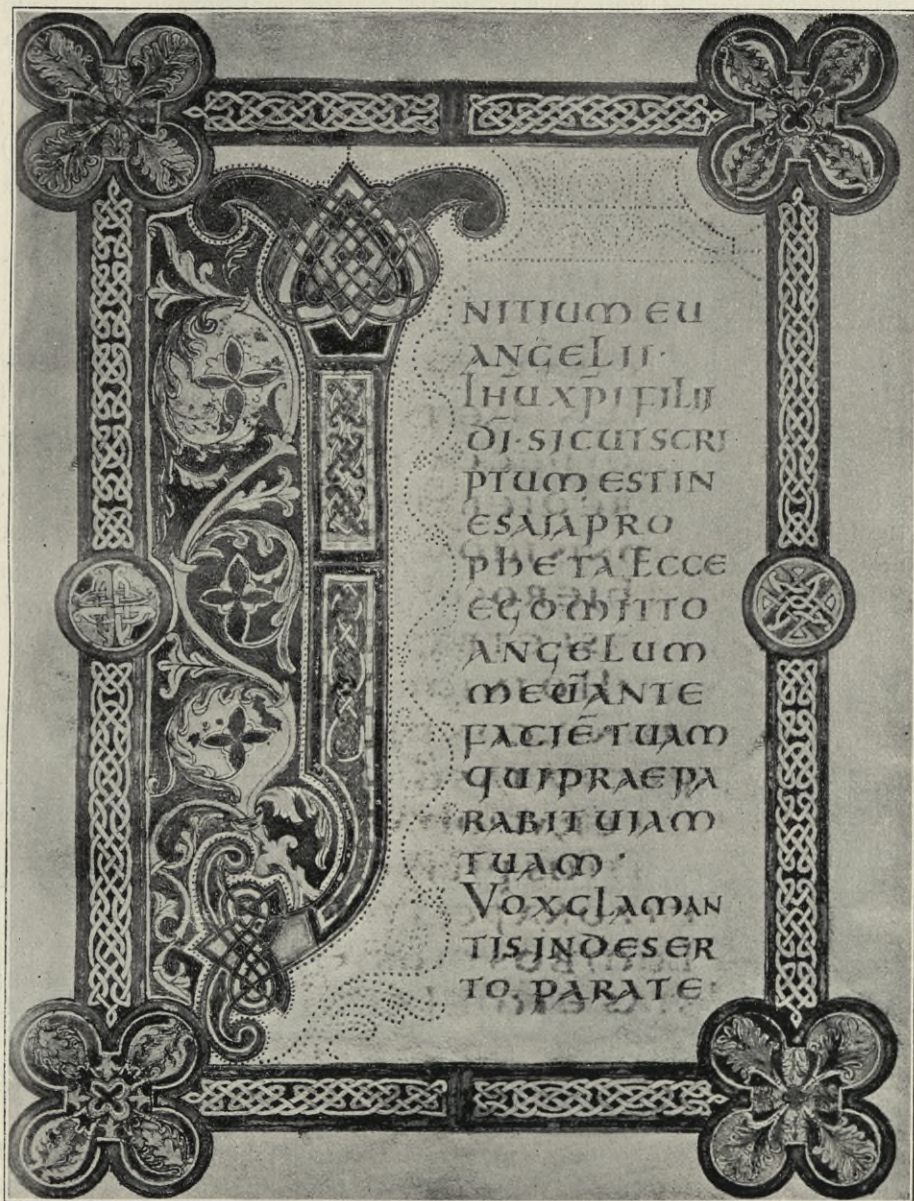 INITIUM EU
ANGELII·
IHU XPI FILII
DI·SICUT SCRI
PTUM EST IN
ESAIA PRO
PHETA·ECCE
EGO MITTO
ANGELUM
MEŪ ANTE
FACIĒ TUAM
QUI PRAEPA
RABIT UIAM
TUAM·
VOX CLAMAN
TIS IN DESER
TO·PARATE